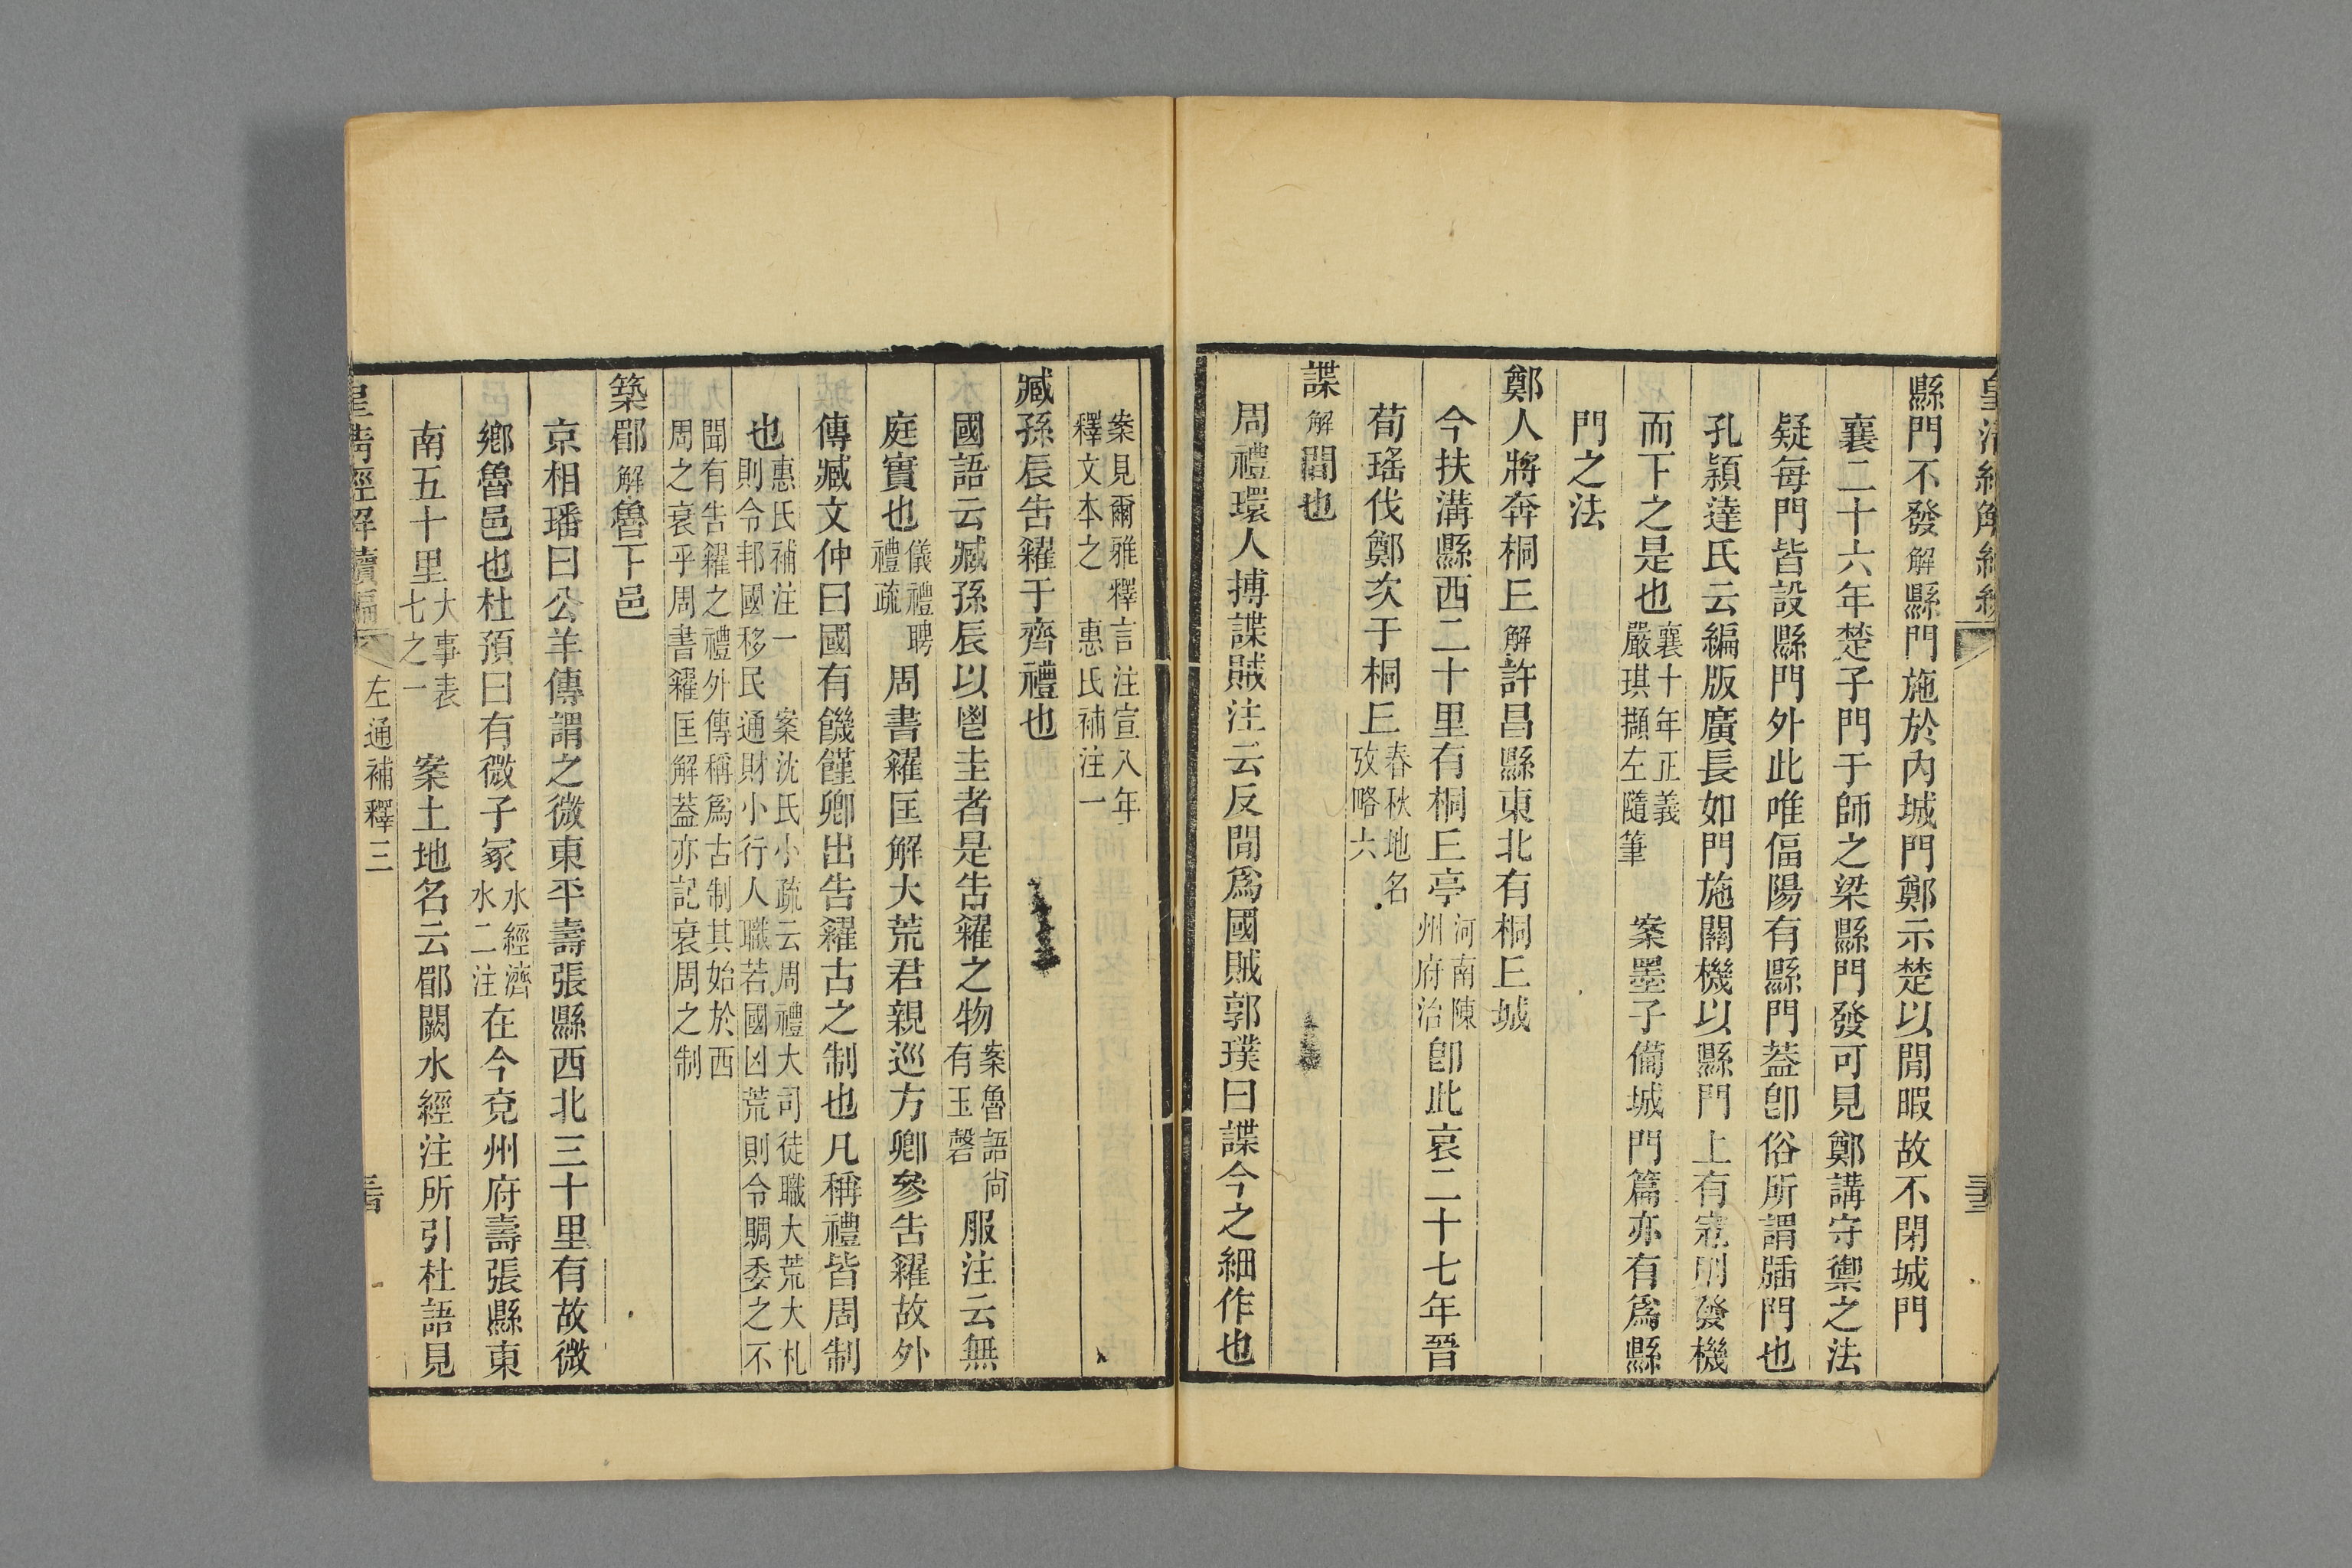 縣門不發解縣門施於內城門鄭示楚以閒暇故不閉城門
襄二十六年楚子門于師之梁縣門發可見鄭講守禦之法
疑每門皆設縣門外此唯偪陽有縣門葢卽俗所謂牐門也
孔穎達氏云編版廣長如門施關機以縣門上有寇則發機
而下之是也襄十年正義嚴琪擷左隨筆案墨子備城門篇亦有爲縣
門之法
鄭人將奔桐𠀉解許昌縣東北有桐𠀉城
今扶溝縣西二十里有桐𠀉亭河南陳州府治卽此哀二十七年晉
荀瑤伐鄭次于桐𠀉春秋地名攷略六
諜解間也
周禮環人搏諜賊注云反間爲國賊郭璞曰諜今之細作也
案見爾雅釋言注宣八年釋文本之惠氏補注一
臧孫辰告糴于齊禮也
國語云臧孫辰以鬯圭者是告糴之物案魯語尙有玉磬服注云無
庭實也儀禮聘禮疏周書糴匡解大荒君親巡方卿參告糴故外
傳臧文仲曰國有饑饉卿出告糴古之制也凡稱禮皆周制
也惠氏補注一則令邦國移民通財案沈氏小疏云周禮大司徒職大荒大札小行人職若國凶荒則令賙委之不
聞有告糴之禮外傳稱爲古制其始於西周之衰乎周書糴匡解葢亦記衰周之制
築郿解魯下邑
京相璠曰公羊傳謂之微東平壽張縣西北三十里有故微
鄉魯邑也杜預曰有微子冢水經濟水二注在今兗州府壽張縣東
南五十里大事表七之一案土地名云郿闕水經注所引杜語見
皇清經解續編
左通補釋三